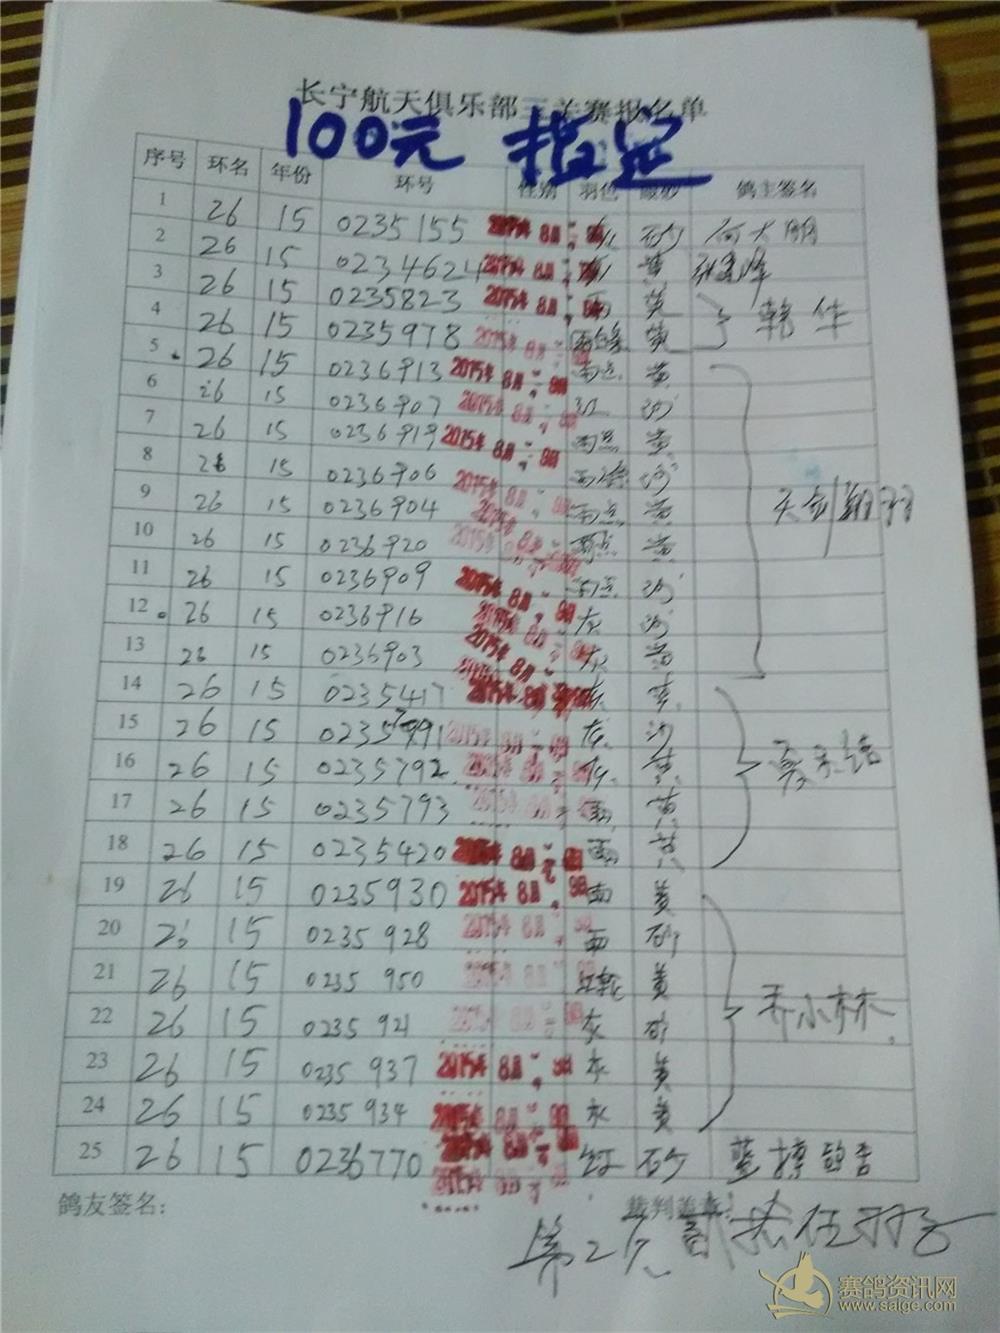 长宁航天俱乐部三关赛报名单
100元 指定
序号 环名 年份 环号 性别 羽色 眼砂 鸽主签名
1 26 15 0235155 2015年8月 砂 何大朋
2 26 15 0234624 2015年8月 黄
3 26 15 0235823 2015年8月 雨 黄 韩伟
4 26 15 0235978 2015年8月 黄
5 26 15 0236913 2015年8月 雨点 黄
6 26 15 0236907 2015年8月 红 沙
7 26 15 0236919 2015年8月 雨点 黄
8 26 15 0236906 2015年8月 沙
9 26 15 0236904 2015年 雨点 黄 天剑翔羽
10 26 15 0236920 雨点 黄
11 26 15 0236909 2015年8月 雨点 沙
12 26 15 0236916 2015年8月 灰 沙
13 26 15 0236903 2015年8月 灰 黄
14 26 15 0235417 2015年8月 灰 黄
15 26 15 2015年8月 灰 沙
16 26 15 0235792 2015年8月 灰 黄
17 26 15 0235793 2015年8月 雨 黄
18 26 15 0235420 2015年8月 雨 黄
19 26 15 0235930 2015年8月 雨 黄
20 26 15 0235928 2015年8月 雨 砂
21 26 15 0235950 2015年8月 红轮 黄
22 26 15 0235921 2015年8月 灰 砂 乔小林
23 26 15 0235937 2015年8月 灰 黄
24 26 15 0235934 2015年8月 灰 黄
25 26 15 0236770 2015年8月 红 砂
鸽友签名： 裁判盖章：
赛鸽资讯网
www.saige.com